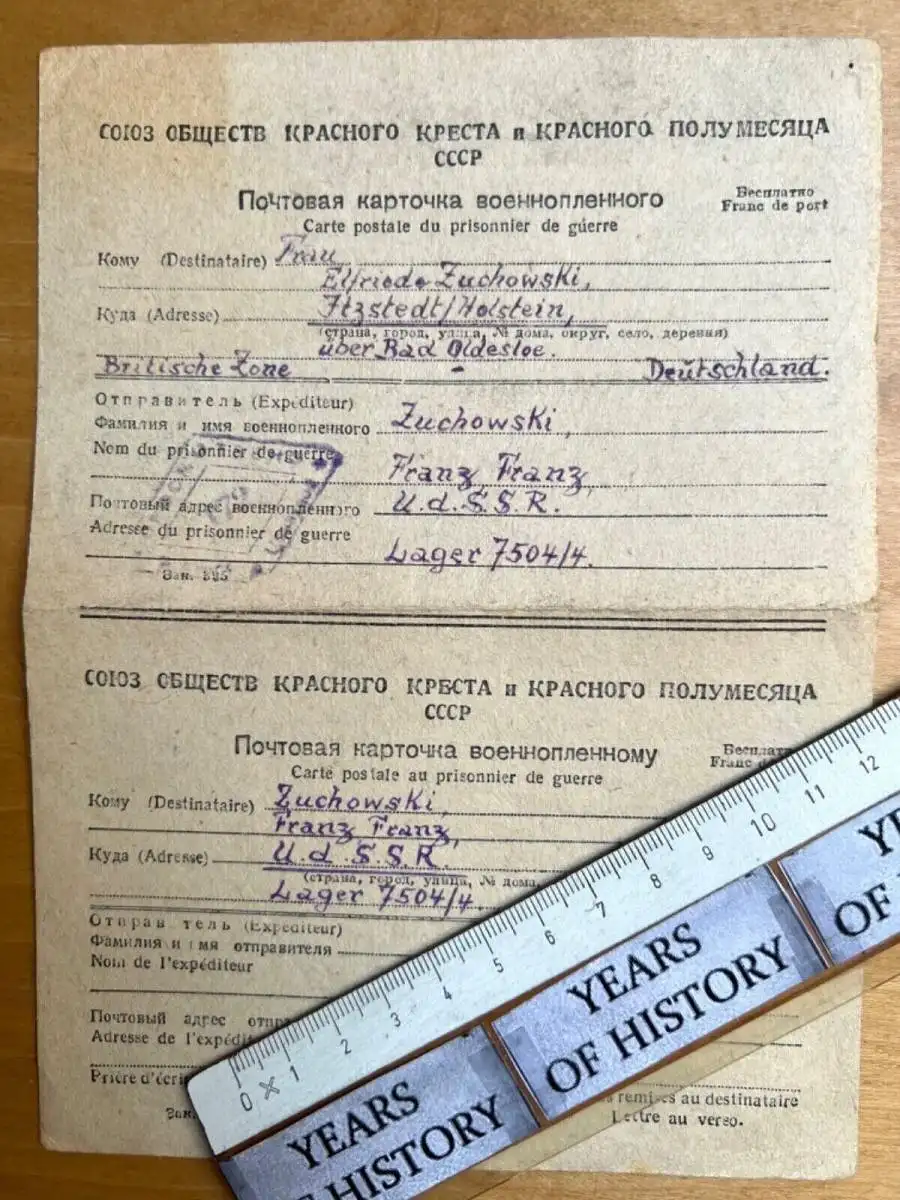 СОЮЗ ОБЩЕСТВ КРАСНОГО КРЕСТА и КРАСНОГО ПОЛУМЕСЯЦА
СССР
Почтовая карточка военнопленного
Бесплатно
Franc de port
Carte postale du prisonnier de guerre
Кому (Destinataire) Frau
Elfriede Zuchowski,
Куда (Adresse) Itzstedt/Holstein,
(страна, город, улица, № дома, округ, село, деревня)
über Bad Oldesloe.
Britische Zone - Deutschland.
Отправитель (Expéditeur)
Фамилия и имя военнопленного Zuchowski,
Nom du prisonnier de guerre
Franz, Franz,
Почтовый адрес военнопленного U.d.S.S.R.
Adresse du prisonnier de guerre
Lager 7504/4.
Зак. 395
СОЮЗ ОБЩЕСТВ КРАСНОГО КРЕСТА и КРАСНОГО ПОЛУМЕСЯЦА
СССР
Почтовая карточка военнопленному
Carte postale au prisonnier de guerre
Кому (Destinataire) Zuchowski,
Franz Franz,
Куда (Adresse) U.d.S.S.R.
(страна, город, улица, № дома,
Lager 7504/4
Отправ тель (Expéditeur)
Фамилия и имя отправителя
Nom de l'expéditeur
Почтовый адрес
Adresse de
Prière
remises au destinataire
Lettre au verso.
0 1 2 3 4 5 6 7 8 9 10 11 12
YEARS
OF HISTORY
YEARS
OF HISTORY